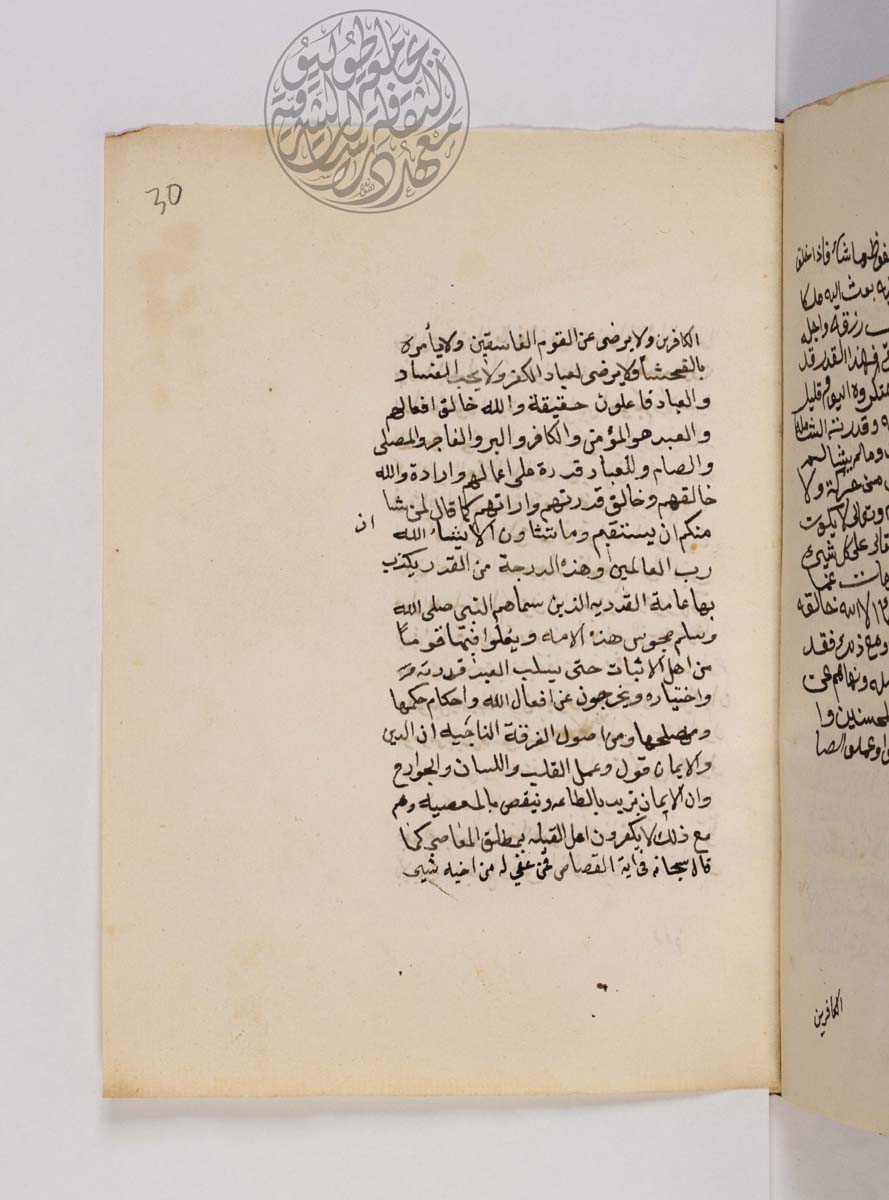 جامعة طوكيو
معهد دراسات الثقافة الشرقية
30
الكافرين ولا يرضى عن القوم الفاسقين ولا يأمره
بالفحشا ولا يرضى لعباد الكفر ولا يحب الفساد
والعباد فاعلون حقيقة والله خالق افعالهم
والعبد هو المؤمن والكافر والبر والفاجر والمصلى
والصام وللعباد قدرة على اعمالهم وارادة والله
خالقهم وخالق قدرتهم واراتهم كما قال لمن شا
ان
منكم ان يستقيم وما تشاون الا ان يشاء الله
رب العالمين وهذه الدرجة من القدر يكذب
بها عامة القدريه الذين سماهم النبي صلى الله
وسلم مجوس هذه الامه ويغلوا فيها قوما
من اهل الاثبات حتى يسلب العبد قدرته
واختياره ويخرجون عن افعال الله واحكام حكمها
ومصلحها ومن اصول الفرقة الناجيه ان الدين
والايمان قول وعمل القلب واللسان والجوارح
وان الايمان يزيد بالطاعه وينقص بالمعصيه وهم
مع ذلك لا يكفرون اهل القبله بمطلق المعاصي كما
قال سبحانه في اية القصاص فمن عفي له من اخيه شيى
الكافرين